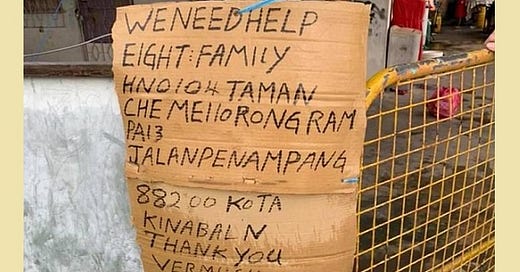 WE NEED HELP
EIGHT: FAMILY
HNO104 TAMAN
CHE MEI IORONG RAM
PAI3
JALANPENAMPANG
88200 KOTA
KINABALN
THANK YOU